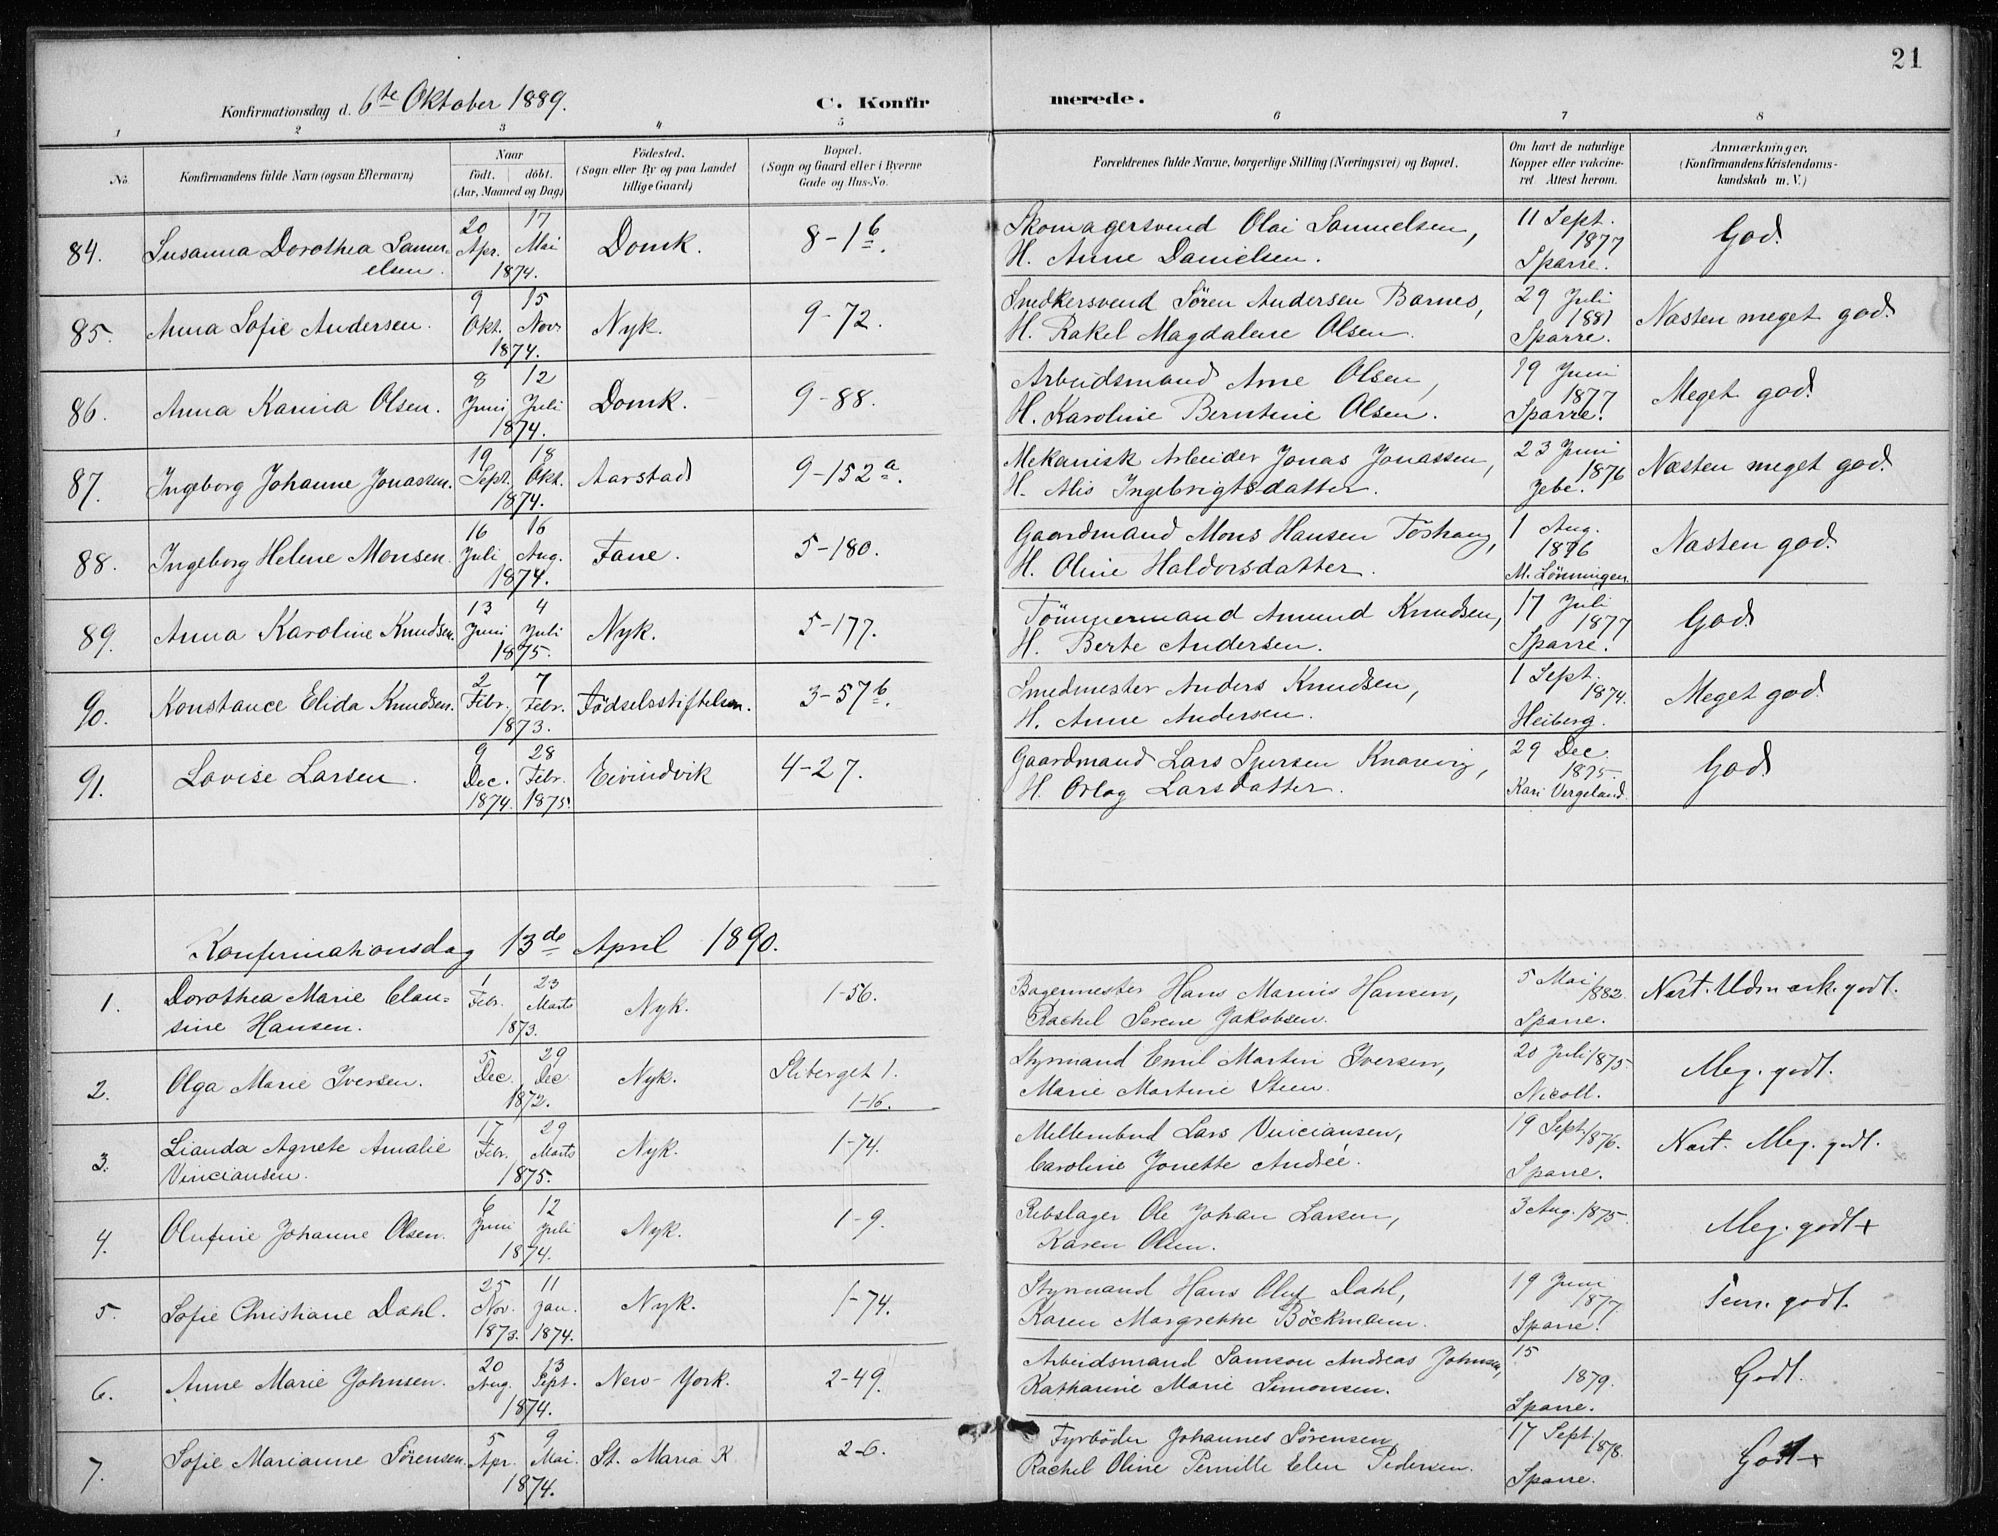 21
Konfirmationsdag d. 6te Oktober 1889. C. Konfirmerede.
1 2 3 4 5 6 7 8
No. Konfirmandens fulde Navn (ogsaa Efternavn) Naar født. døbt. (Aar, Maaned og Dag) Fødested. (Sogn eller By og paa Landet tillige Gaard) Bopæl. (Sogn og Gaard eller i Byerne Gade og Hus-No. Forældrenes fulde Navne, borgerlige Stilling (Næringsvei) og Bopæl. Om havt de naturlige Kopper eller vakcineret. Attest herom. Anmærkninger. (Konfirmandens Kristendomskundskab m. V.)
84. Susanna Dorothea Samuelsen. 20 Apr. 17 Mai 1874. Domk. 8-1b. Skomagersvend Olai Samuelsen, H. Anne Danielsen. 11 Sept. 1877 Sparre. God.
85. Anna Sofie Andersen. 9 Okt. 15 Nov. 1874. Nyk. 9-72. Snedkersvend Søren Andersen Barnes, H. Rakel Magdalene Olsen. 29 Juli 1881 Sparre. Næsten meget god.
86. Anna Karina Olsen. 8 Juni 12 Juli 1874. Domk. 9-88. Arbeidsmand Arne Olsen, H. Karoline Berntine Olsen. 19 Juni 1877 Sparre. Meget god.
87. Ingeborg Johanne Jonassen. 19 Sept. 18 Okt. 1874. Aarstad 9-152a. Mekanisk Arbeider Jonas Jonassen, H. Alis Ingebrigtsdatter. 23 Juni 1876 Jebe. Næsten meget god.
88. Ingeborg Helene Monsen. 16 Juli 16 Aug. 1874. Fane. 5-180. Gaardmand Mons Hansen H. Oline Haldorsdatter. 1 Aug. 1876 M. Lönningen Næsten god.
89. Anna Karoline Knudsen. 13 Juni 4 Juli 1875. Nyk. 5-177. Tömmermand Amund Knudsen, H. Berte Andersen. 17 Juli 1877 Sparre. God
90. Konstance Elida Knudsen. 2 Febr. 7 Febr. 1873. Födselsstiftelsen. 3-57b. Smedmester Anders Knudsen, H. Anne Andersen. 1 Sept. 1874. Heiberg. Meget god.
91. Lovise Larsen. 9 Dec. 1874. 28 Febr. 1875. Eivindvik 4-27. Gaardmand Lars H. Larsdatter. 29 Dec 1875. Kari Vergeland. God
Konfirmationsdag 13de April 1890.
1. Dorothea Marie Clausine Hansen. 1 Febr. 23 Marts 1873. Nyk. 1-56. Bagermester Hans Marius Hansen, Rachel Serene Jakobsen. 5 Mai 1882. Sparre. Næst. Udmærk. godt.
2. Olga Marie Iversen. 5 Dec. 29 Dec 1872. Nyk. Skiberget 1. 1-16. Styrmand Emil Martin Iversen, Marie Martine Steen. 20 Juli 1875. Nicoll. Meg. godt.
3. Lianda Agnete Amalie Vinciansen. 17 Febr. 29 Marts 1875. Nyk. 1-74. Lars Vinciansen, Caroline Jonette Andrée. 19 Sept 1876. Sparre. Næst. Meg. godt.
4. Olufine Johanne Olsen. 6 Juni 12 Juli 1874. Nyk. 1-9. Rebslager Ole Johan Larsen, Karen Olsen. 3 Aug. 1875. Meg. godt +
5. Sofie Christiane Dahl. 25 Nov. 1873. 11 Jan. 1874. Nyk. 1-74. Styrmand Hans Oluf Dahl, Karen Margrethe Böckmann. 19 Juni 1877. Sparre. Tem. godt.
6. Anne Marie Johnsen. 20 Aug. 13 Sept. 1874. New-York. 2-49. Arbeidsmand Samson Andreas Johnsen, Katharine Marie Simonsen. 15 1879. Sparre. Godt.
7. Sofie Marianne Sørensen. 5 Apr. 9 Mai. 1874. St. Maria K 2-6. Fyrböder Johannes Sørensen Rachel Oline Pernille Elen Pedersen. 17 Sept 1878. Sparre. Godt +